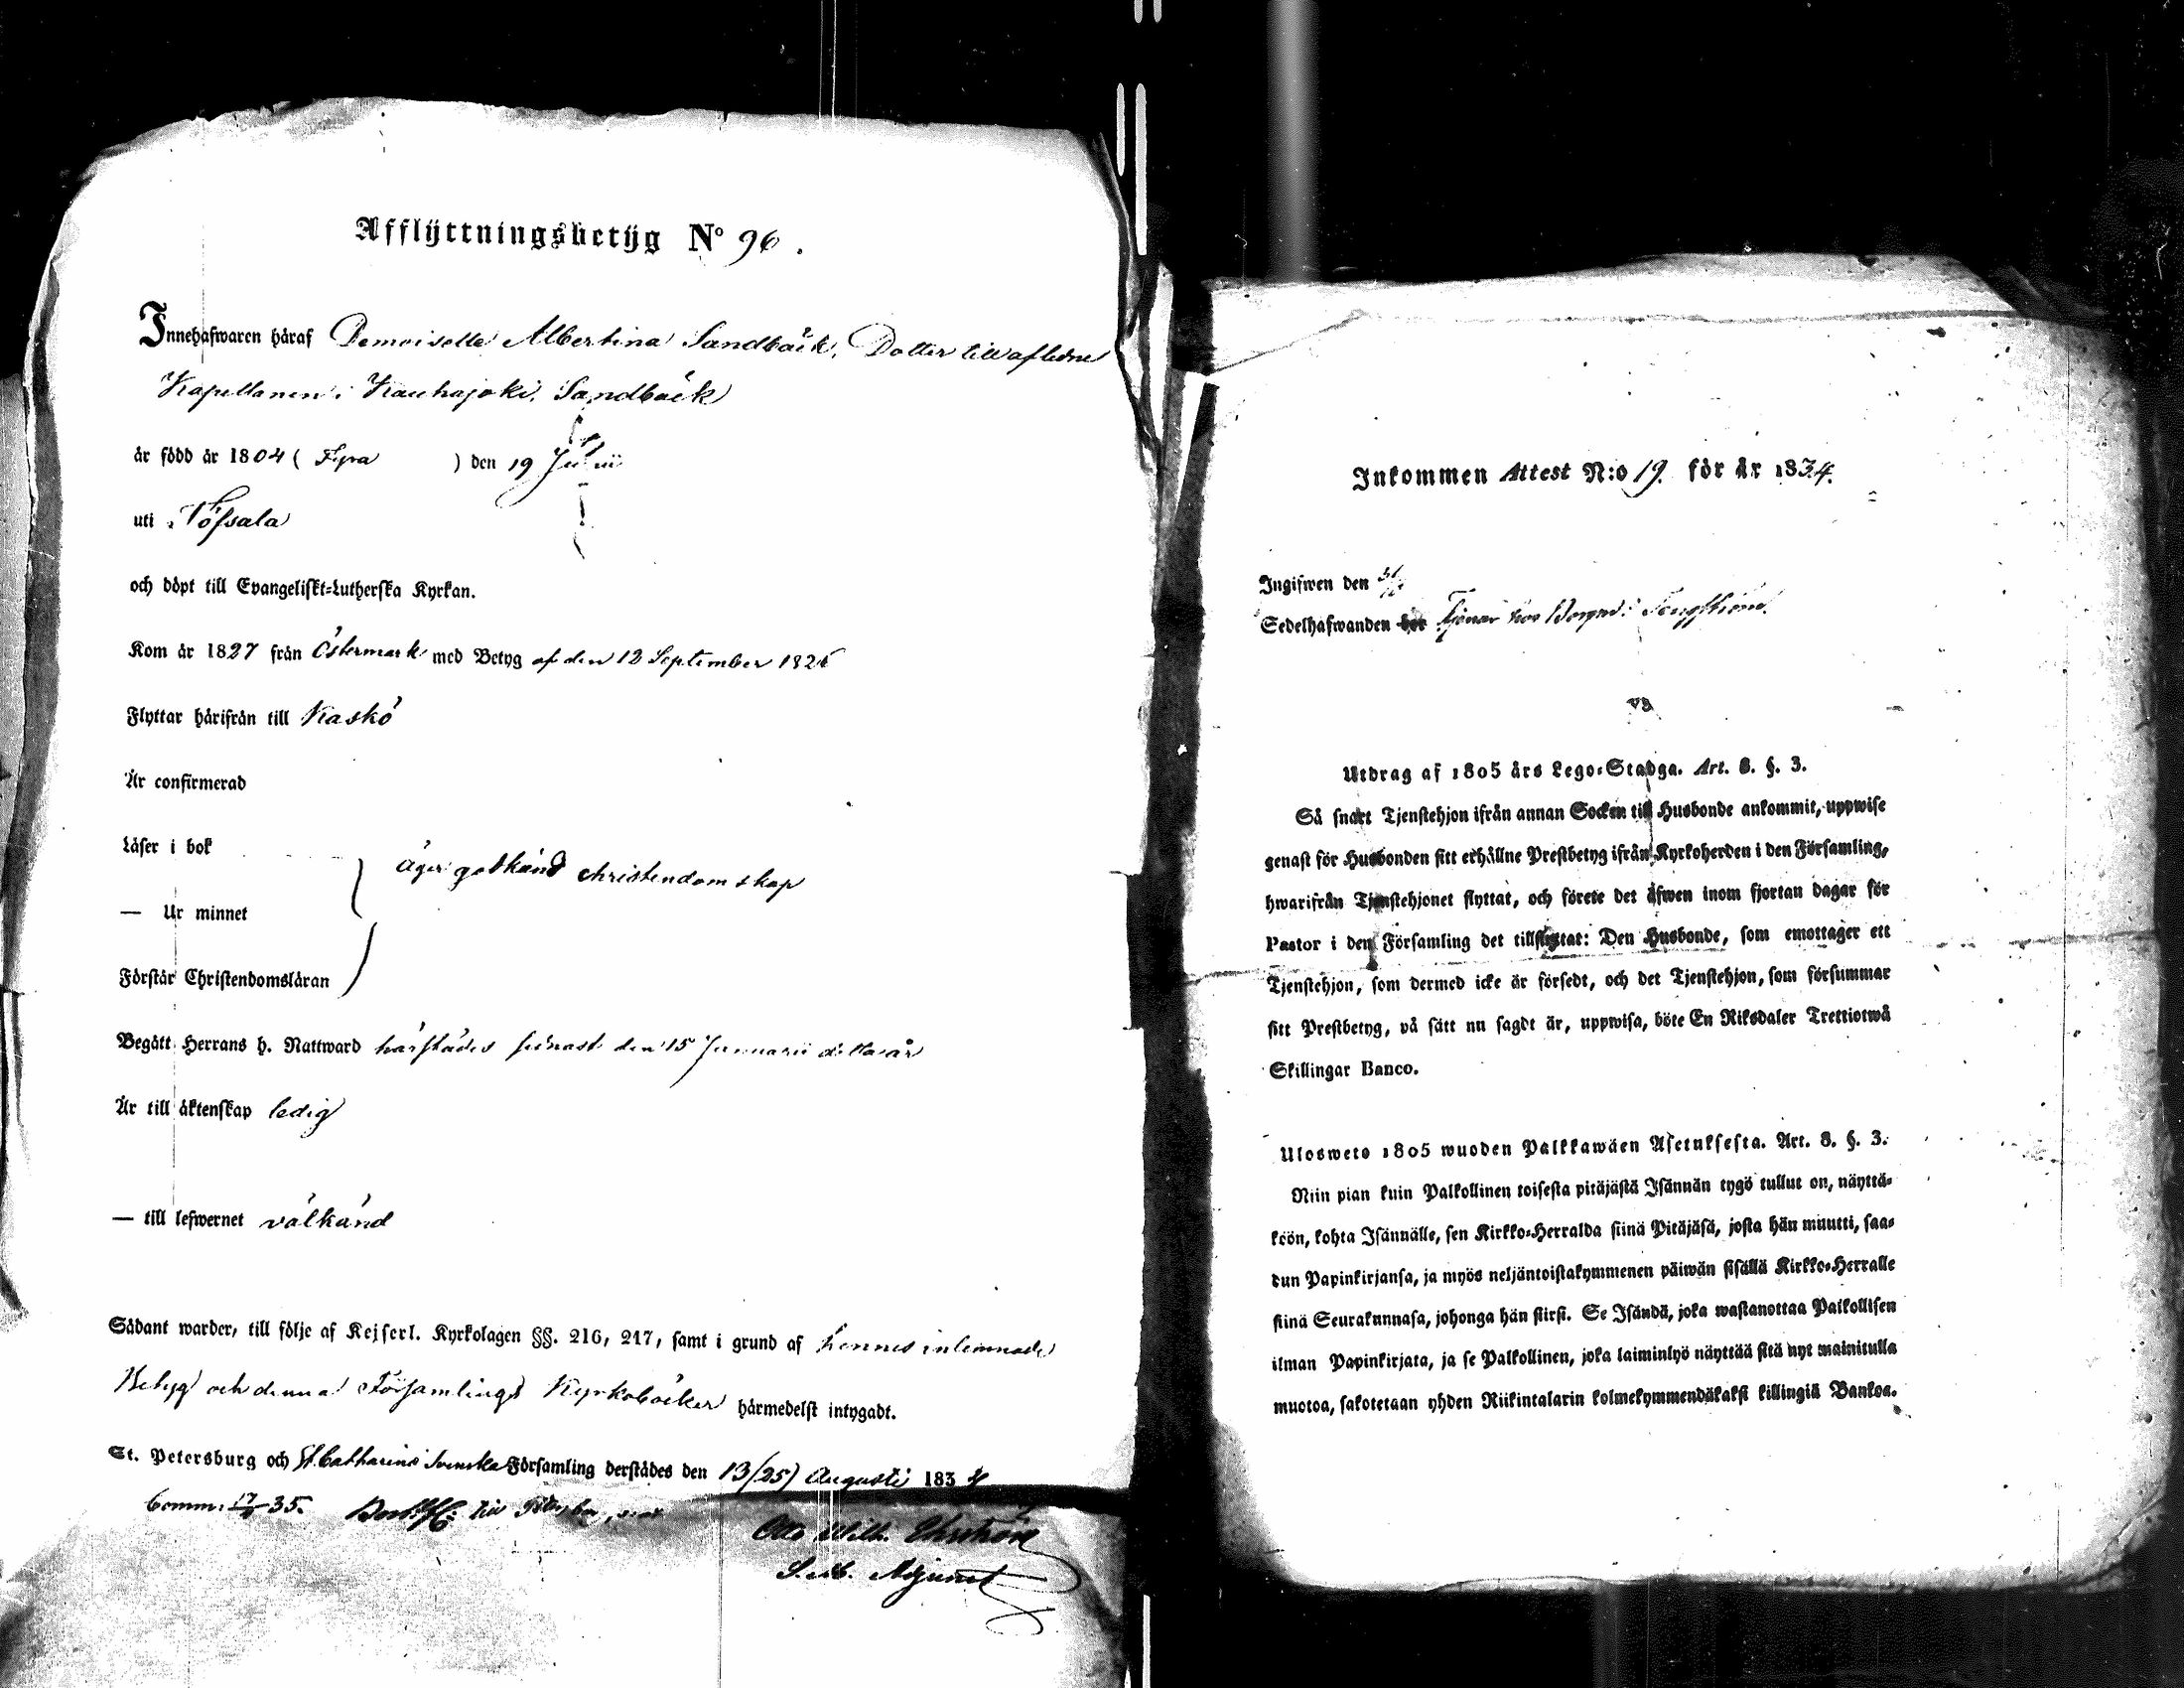 Afflyttningsbetyg No 96.
Innehafwaren häraf Demoiselle Albertina Sandbäck, Dotter till aflidne
Kapellanen i Kauhajoki, Sandbäck
är född år 1804 ( Fyra ) den 19 Junii
uti Töfsala
och döpt till Evangeliskt-Lutherska Kyrkan.
Kom år 1827 från Östermark med Betyg af den 12 September 1826
Flyttar härifrån till Kaskö
Är confirmerad
Läser i bok
— Ur minnet
äger godkänd christendomskap
Förstår Christendomsläran
Begått Herrans h. Nattward härstädes sednast den 15 Januarii detta år
Är till äktenskap ledig
— till lefwernet välkänd
Sådant warder, till följe af Kejserl. Kyrkolagen §§. 216, 217, samt i grund af hennes inlemnade
Betyg och denna Församlings Kyrkoböcker härmedelst intygadt.
St. Petersburg och St. Catharina Svenska Församling derstädes den 13/25 Augusti 1834
Comm: 35.
Otto Wilh. Ehrström
Adjunct
Inkommen Attest N:o 19. för År 1834.
Ingifwen den
Sedelhafwanden bor Tjenar hos Borgm: Tengström.
Utdrag af 1805 års Lego-Stadga. Art. 8. §. 3.
Så snart Tjenstehjon ifrån annan Socken till Husbonde ankommit, uppwise
genast för Husbonden sitt erhållne Prestbetyg ifrån Kyrkoherden i den Församling,
hwarifrån Tjenstehjonet flyttat, och förete det äfwen inom fjortan dagar för
Pastor i den Församling det tillflyttat: Den Husbonde, som emottager ett
Tjenstehjon, som dermed icke är försedt, och det Tjenstehjon, som försummar
sitt Prestbetyg, på sätt nu sagdt är, uppwisa, böte En Riksdaler Trettiotwå
Skillingar Banco.
Uloswete 1805 wuoden Palkkawäen Asetuksesta. Art. 8. §. 3.
Niin pian kuin Palkollinen toisesta pitäjästä Isännän tygö tullut on, näyttä-
köön, kohta Isännälle, sen Kirkko-Herralda siinä Pitäjäsä, josta hän muutti, saa-
dun Papinkirjansa, ja myös neljäntoistakymmenen päiwän sisällä Kirkko-Herralle
siinä Seurakunnasa, johonga hän siirsi. Se Isändä, joka wastanottaa Palkollisen
ilman Papinkirjata, ja se Palkollinen, joka laiminlyö näyttää sitä nyt mainitulla
muotoa, sakotetaan yhden Riikintalarin kolmekymmendäkaksi killingiä Bankoa.